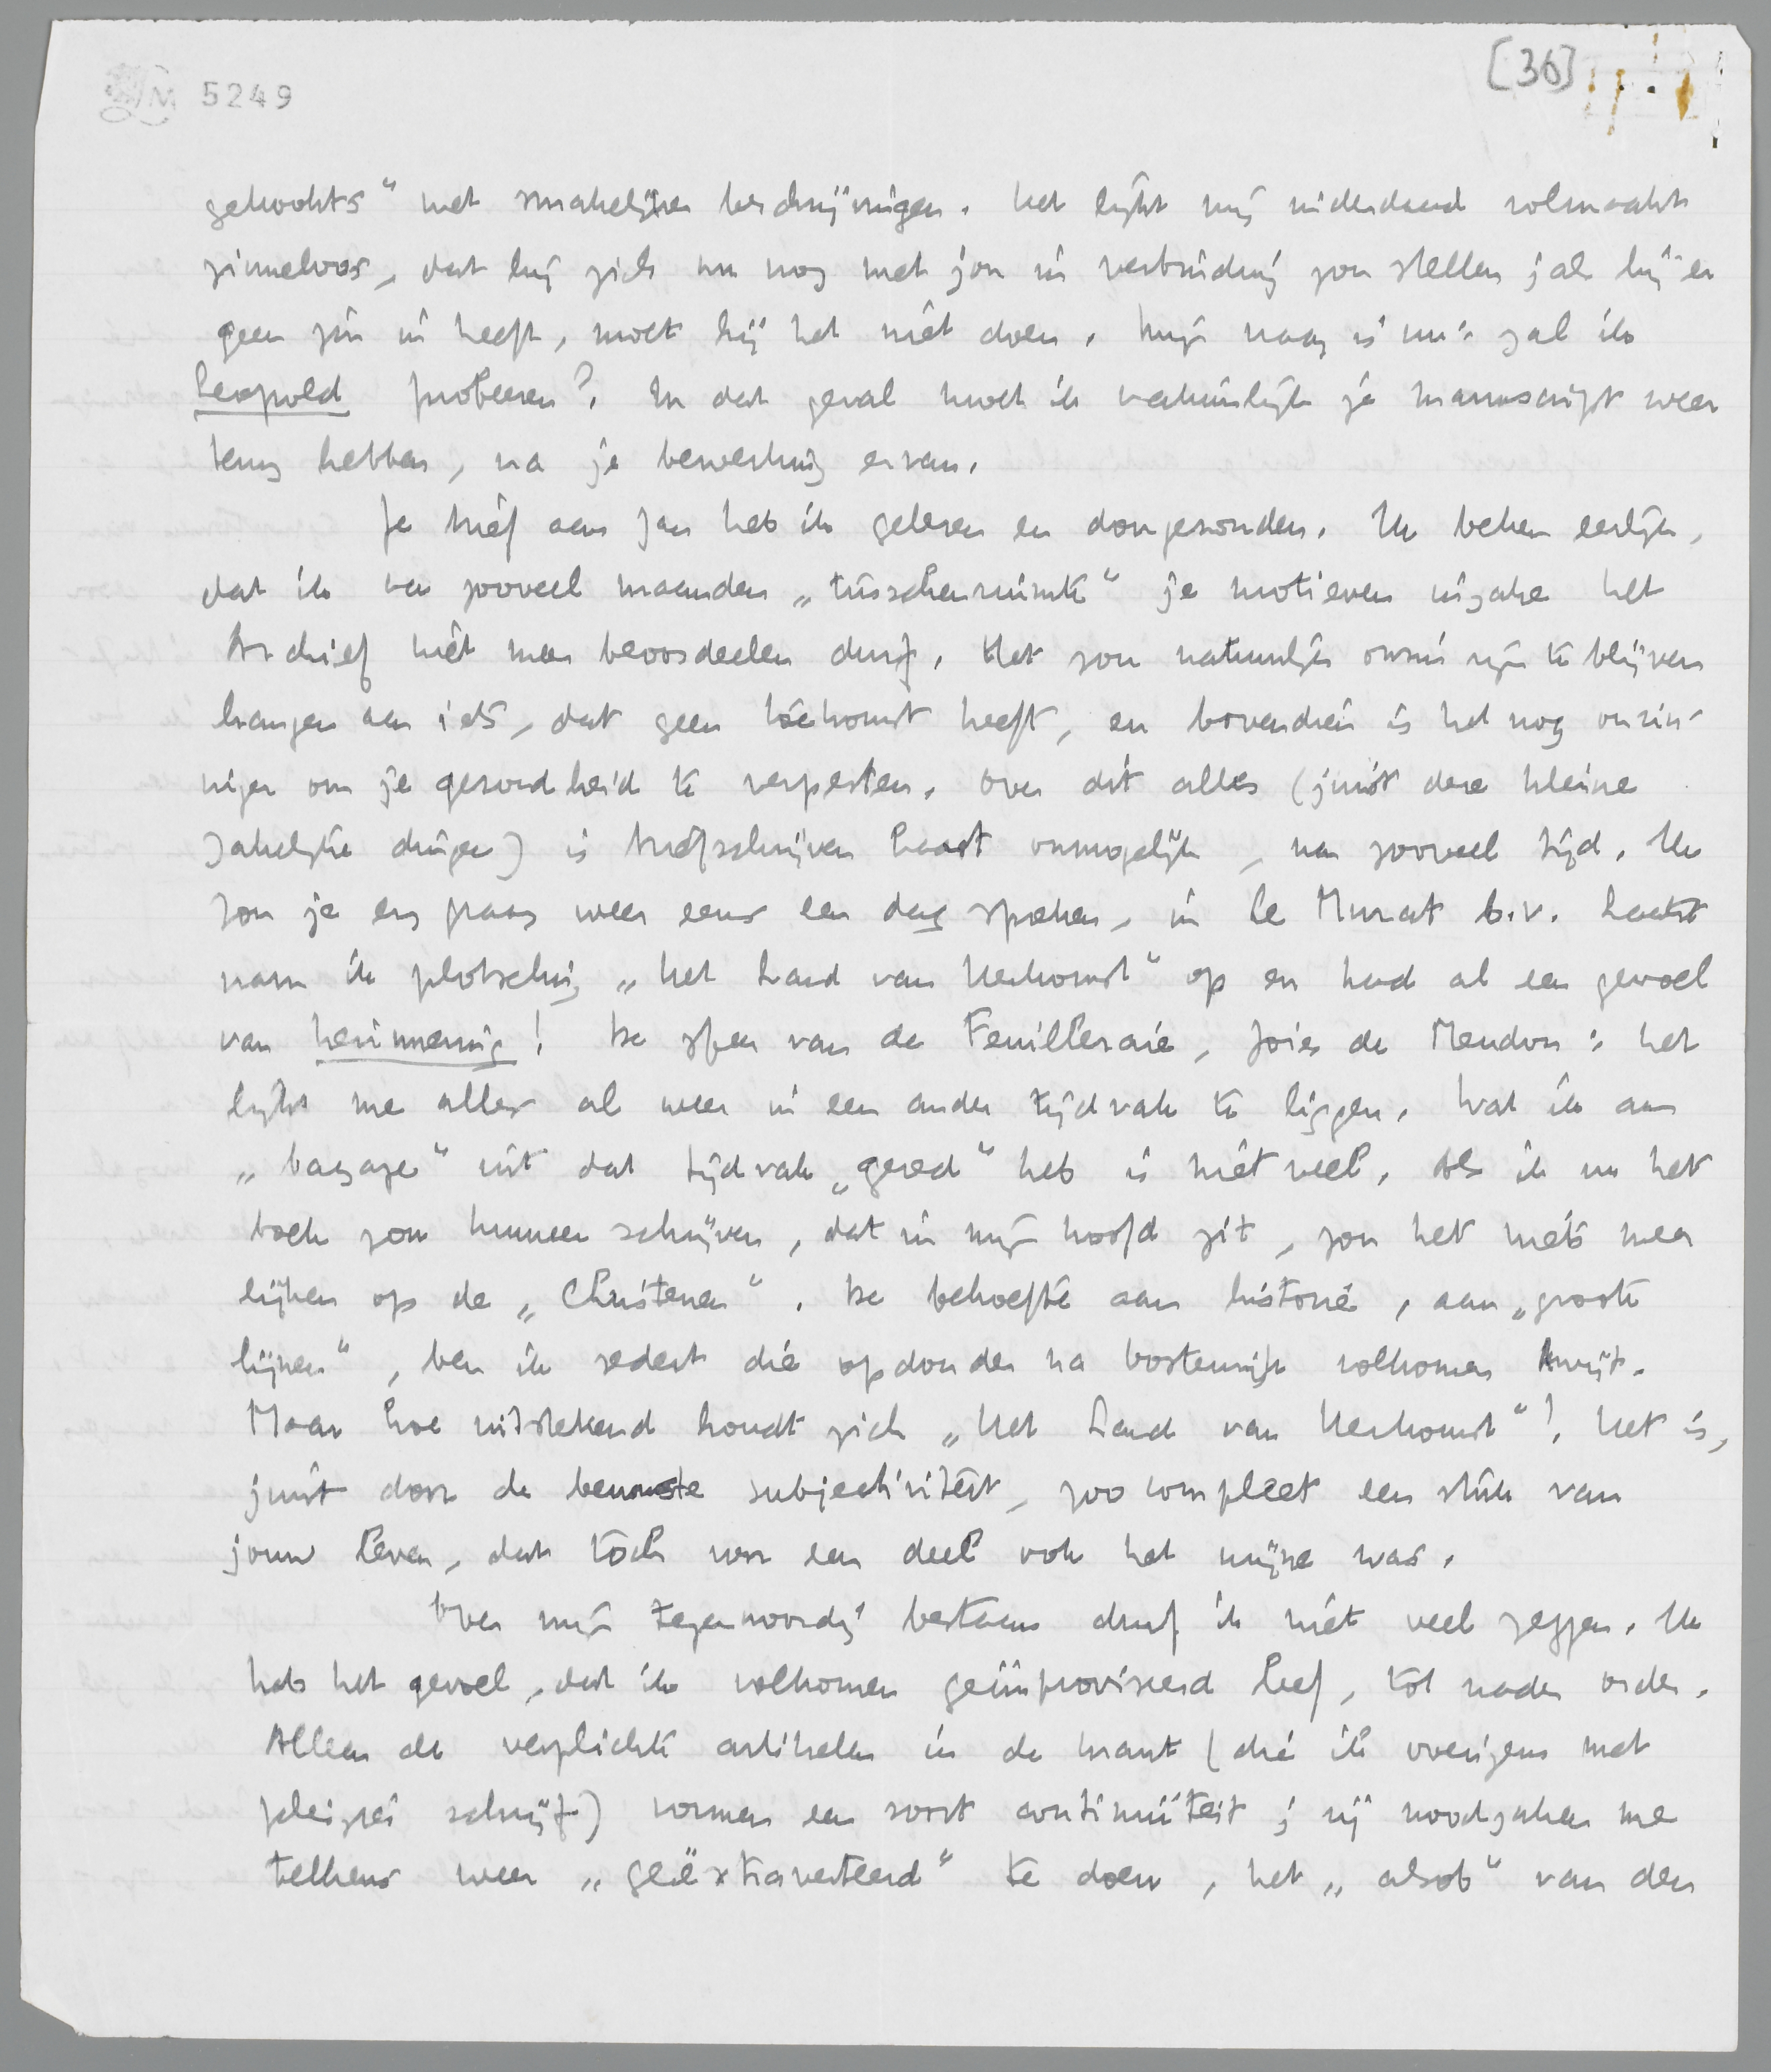 [36]
M 5249
gekookts" met smakelijke beschrijvingen. Het lijkt mij inderdaad volmaakt
zinneloos, dat hij zich nu nog met jou in verbinding zou stellen; als hij er
geen zin in heeft, moet hij het niet doen. Mijn vraag is nu: zal ik
Leopold probeeren? In dat geval moet ik natuurlijk je manuscript weer
terug hebben, na je bewerking ervan.
Je brief aan Jan heb ik gelezen en doorgezonden. Ik beken eerlijk,
dat ik na zooveel maanden „tusschenruimte" je motieven inzake het
Archief niet meer beoordeelen durf. Het zou natuurlijk onzin zijn te blijven
hangen aan iets, dat geen toekomst heeft, en bovendien is het nog onzin-
niger om je gezondheid te verpesten. Over dit alles (juist deze kleine
zakelijke dingen) is briefschrijven haast onmogelijk, na zooveel tijd. Ik
zou je erg graag weer eens een dag spreken, in Le Murat b.v. Laatst
nam ik plotseling „Het Land van Herkomst" op en had al een gevoel
van herinnering! De sfeer van de Feuilleraie, Joies de Meudon: het
lijkt me alles al weer in een ander tijdvak te liggen. Wat ik aan
„bagage" uit dat tijdvak „gered" heb is niet veel. Als ik nu het
boek zou kunnen schrijven, dat in mijn hoofd zit, zou het niets meer
lijken op de „Christenen". De behoefte aan historie, aan „groote
lijnen", ben ik sedert die opdonder na Oostenrijk volkomen kwijt.
Maar hoe uitstekend houdt zich „Het Land van Herkomst"! Het is,
juist door de bewuste subjectiviteit, zoo compleet een stuk van
jouw leven, dat toch voor een deel ook het mijne was.
Over mijn tegenwoordig bestaan durf ik niet veel zeggen. Ik
heb het gevoel, dat ik volkomen geïmproviseerd leef, tot nader order.
Alleen de verplichte artikelen in de krant (die ik overigens met
pleizier schrijf) vormen een soort continuïteit; zij noodzaken me
telkens weer „geëxtraverteerd" te doen, het „alsob" van den